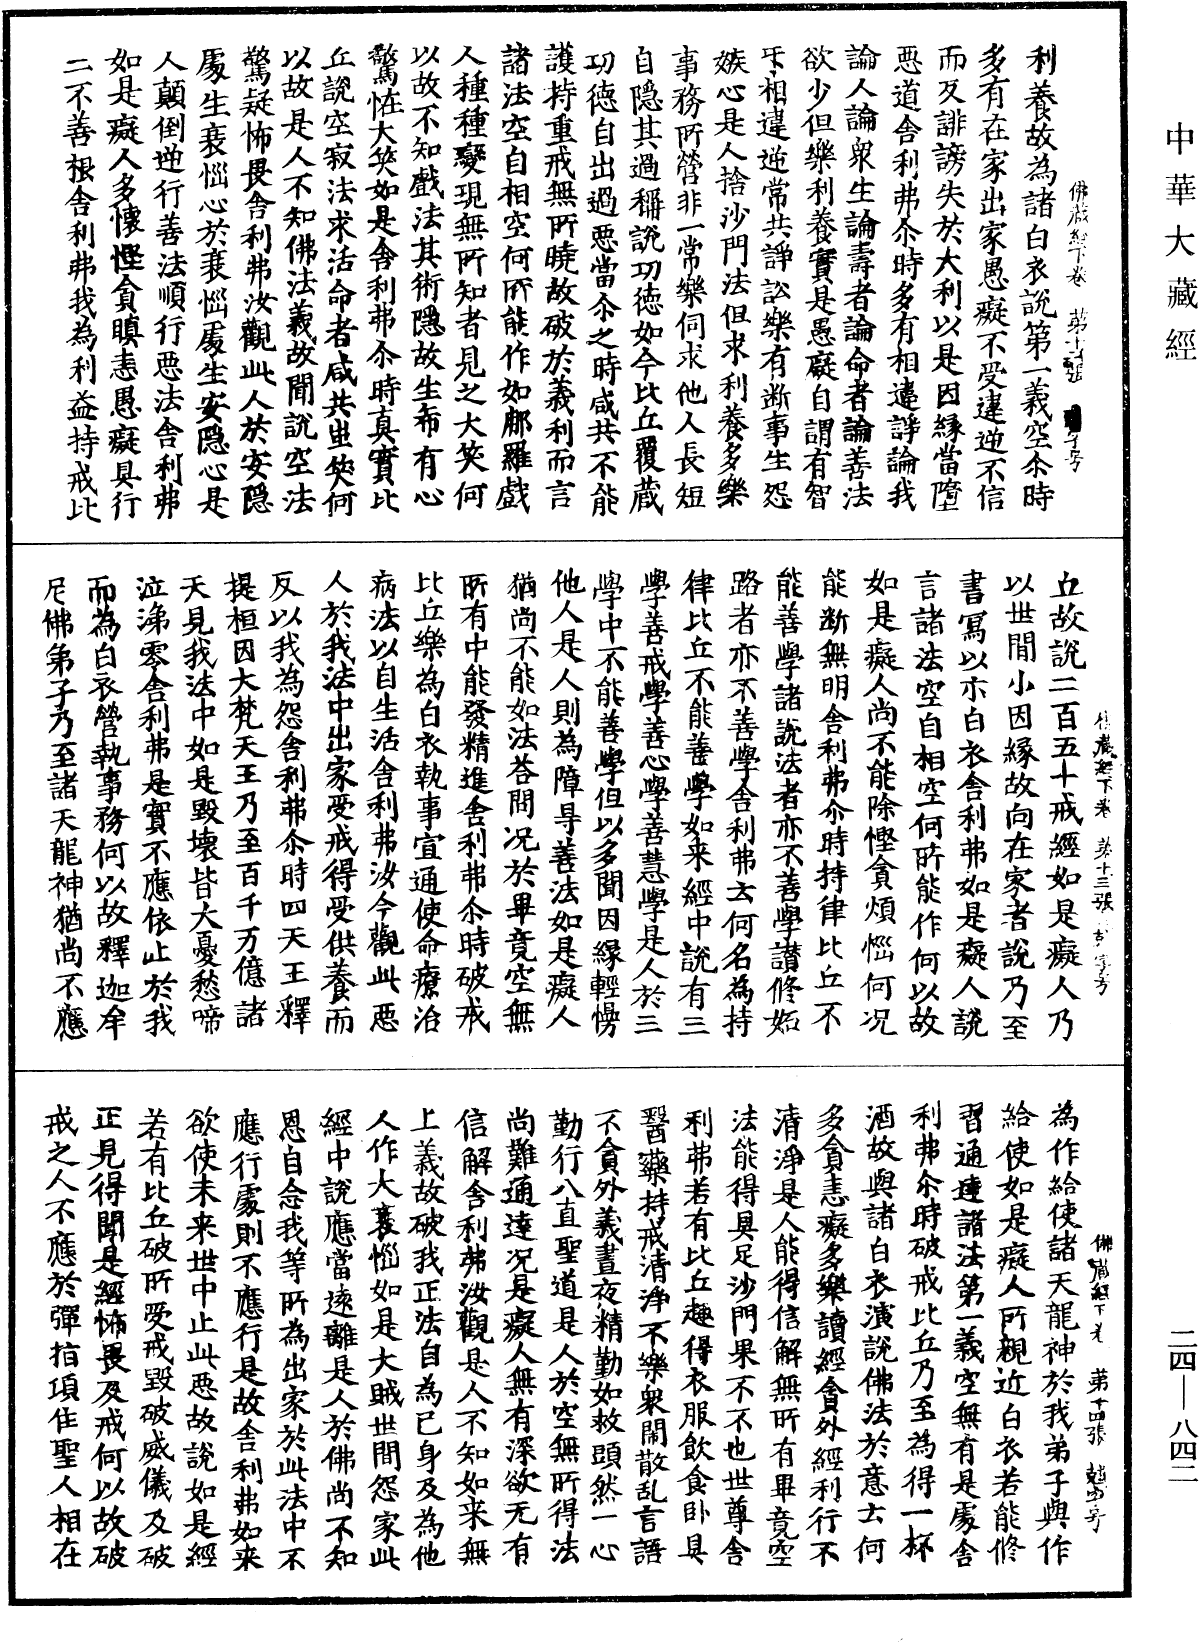 中華大藏經
佛藏經下卷　第十二張　字号
利養故為諸白衣說第一義空尒時
多有在家出家愚癡不受違逆不信
而反誹謗失於大利以是因緣當墮
惡道舍利弗尒時多有相違諍論我
論人論衆生論壽者論命者論善法
欲少但樂利養實是愚癡自謂有智
互相違逆常共諍訟樂有断事生怨
嫉心是人捨沙門法但求利養多樂
事務所營非一常樂伺求他人長短
自隱其過稱說功德如今比丘覆藏
功德自出過惡當尒之時咸共不能
護持重戒無所曉故破於義利而言
諸法空自相空何所能作如那羅戲
人種種變現無所知者見之大笑何
以故不知戲法其術隱故生希有心
驚怪大笑如是舍利弗尒時真實比
丘說空寂法求活命者咸共出笑何
以故是人不知佛法義故聞說空法
驚疑怖畏舍利弗汝觀此人於安隱
處生衰惱心於衰惱處生安隱心是
人顛倒逆行善法順行惡法舍利弗
如是癡人多懷慳貪瞋恚愚癡具行
二不善根舍利弗我為利益持戒比
佛藏經下卷　第十三張　字号
丘故說二百五十戒經如是癡人乃
以世間小因緣故向在家者說乃至
書寫以示白衣舍利弗如是癡人說
言諸法空自相空何所能作何以故
如是癡人尚不能除慳貪煩惱何况
能断無明舍利弗尒時持律比丘不
能善學諸說法者亦不善學讃修妬
路者亦不善學舍利弗云何名為持
律比丘不能善學如来經中說有三
學善戒學善心學善慧學是人於三
學中不能善學但以多聞因緣輕慢
他人是人則為障㝵善法如是癡人
猶尚不能如法荅問况於畢竟空無
所有中能發精進舍利弗尒時破戒
比丘樂為白衣執事宣通使命療治
病法以自生活舍利弗汝今觀此惡
人於我法中出家受戒得受供養而
反以我為怨舍利弗尒時四天王釋
提桓因大梵天王乃至百千万億諸
天見我法中如是毀壞皆大憂愁啼
泣涕零舍利弗是實不應依止於我
而為白衣營執事務何以故釋迦牟
尼佛弟子乃至諸天龍神猶尚不應
佛藏經下卷　第十四張　字号
為作給使諸天龍神於我弟子與作
給使如是癡人所親近白衣若能修
習通達諸法第一義空無有是處舍
利弗尒時破戒比丘乃至為得一杯
酒故與諸白衣演說佛法於意云何
多貪恚癡多樂讀經貪外經利行不
清淨是人能得信解無所有畢竟空
法能得具足沙門果不不也世尊舍
利弗若有比丘趣得衣服飲食卧具
醫藥持戒清淨不樂衆閙散乱言語
不貪外義晝夜精勤如救頭然一心
勤行八直聖道是人於空無所得法
尚難通達况是癡人無有深欲无有
信解舍利弗汝觀是人不知如来無
上義故破我正法自為已身及為他
人作大衰惱如是大賊世間怨家此
經中說應當遠離是人於佛尚不知
恩自念我等所為出家於此法中不
應行處則不應行是故舍利弗如来
欲使未来世中止此惡故說如是經
若有比丘破所受戒毀破威儀及破
正見得聞是經怖畏及戒何以故破
戒之人不應於彈指項住聖人相在
二四—八四二